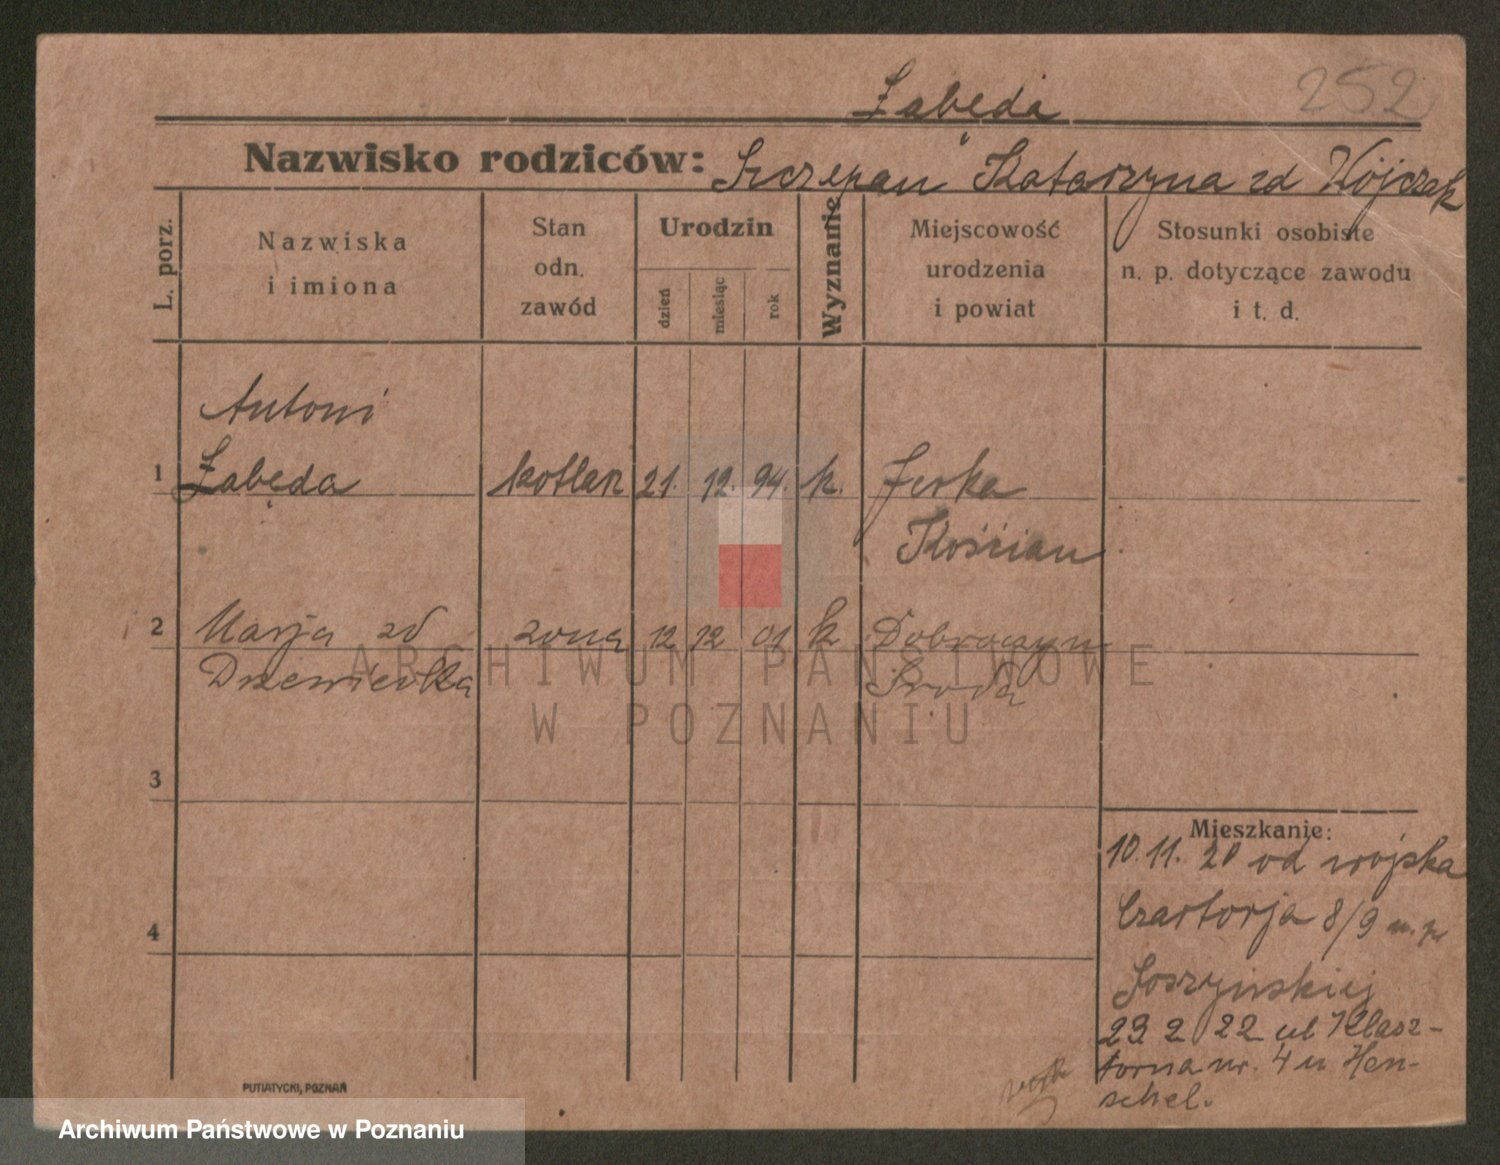 252
Żabęda
Nazwisko rodziców: Szczepan Katarzyna zd Wójczak
L. porz.
Nazwiska
i imiona
Stan
odn.
zawód
Urodzin
dzień
miesiąc
rok
Wyznanie
Miejscowość
urodzenia
i powiat
Stosunki osobiste
n. p. dotyczące zawodu
i t. d.
Antoni
1 Żabęda kotlarz 21. 12. 94. k. Jerka
Kościan
2 Marja zd żona 12 12 01 k Dobroczyn
Drzewiecka Środa
3
4
Mieszkanie:
10. 11. 20 od wojska
Czartorja 8/9 u. p.
Soszyńskiej
23 2 22 ul Klasz-
torna nr. 4 u Hen-
schel.
PUTIATYCKI, POZNAŃ
ARCHIWUM PAŃSTWOWE
W POZNANIU
Archiwum Państwowe w Poznaniu